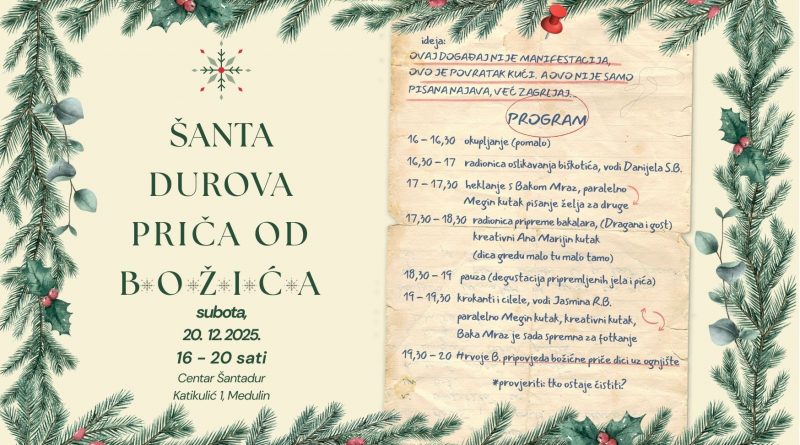 ŠANTA
DUROVA
PRIČA OD
B*O*Ž*I*Ć*A
subota,
20. 12. 2025.
16 - 20 sati
Centar Šantadur
Katikulić 1, Medulin
ideja:
OVAJ DOGAĐAJ NIJE MANIFESTACIJA,
OVO JE POVRATAK KUĆI. A OVO NIJE SAMO
PISANA NAJAVA, VEĆ ZAGRLJAJ...
PROGRAM
16 - 16,30 okupljanje (pomalo)
16,30 - 17 radionica oslikavanja biškotića, vodi Danijela S.B.
17 - 17,30 heklanje s Bakom Mraz, paralelno
Megin kutak pisanje želja za druge
17,30 - 18,30 radionica pripreme bakalara, (Dragana i gost)
kreativni Ana Marijin kutak
(dica gredu malo tu malo tamo)
18,30 - 19 pauza (degustacija pripremljenih jela i pića)
19 - 19,30 krokanti i cilele, vodi Jasmina R.B.
paralelno Megin kutak, kreativni kutak,
Baka Mraz je sada spremna za fotkanje
19,30 - 20 Hrvoje B. pripovjeda božićne priče dici uz ognjište
*provjeriti: tko ostaje čistiti?